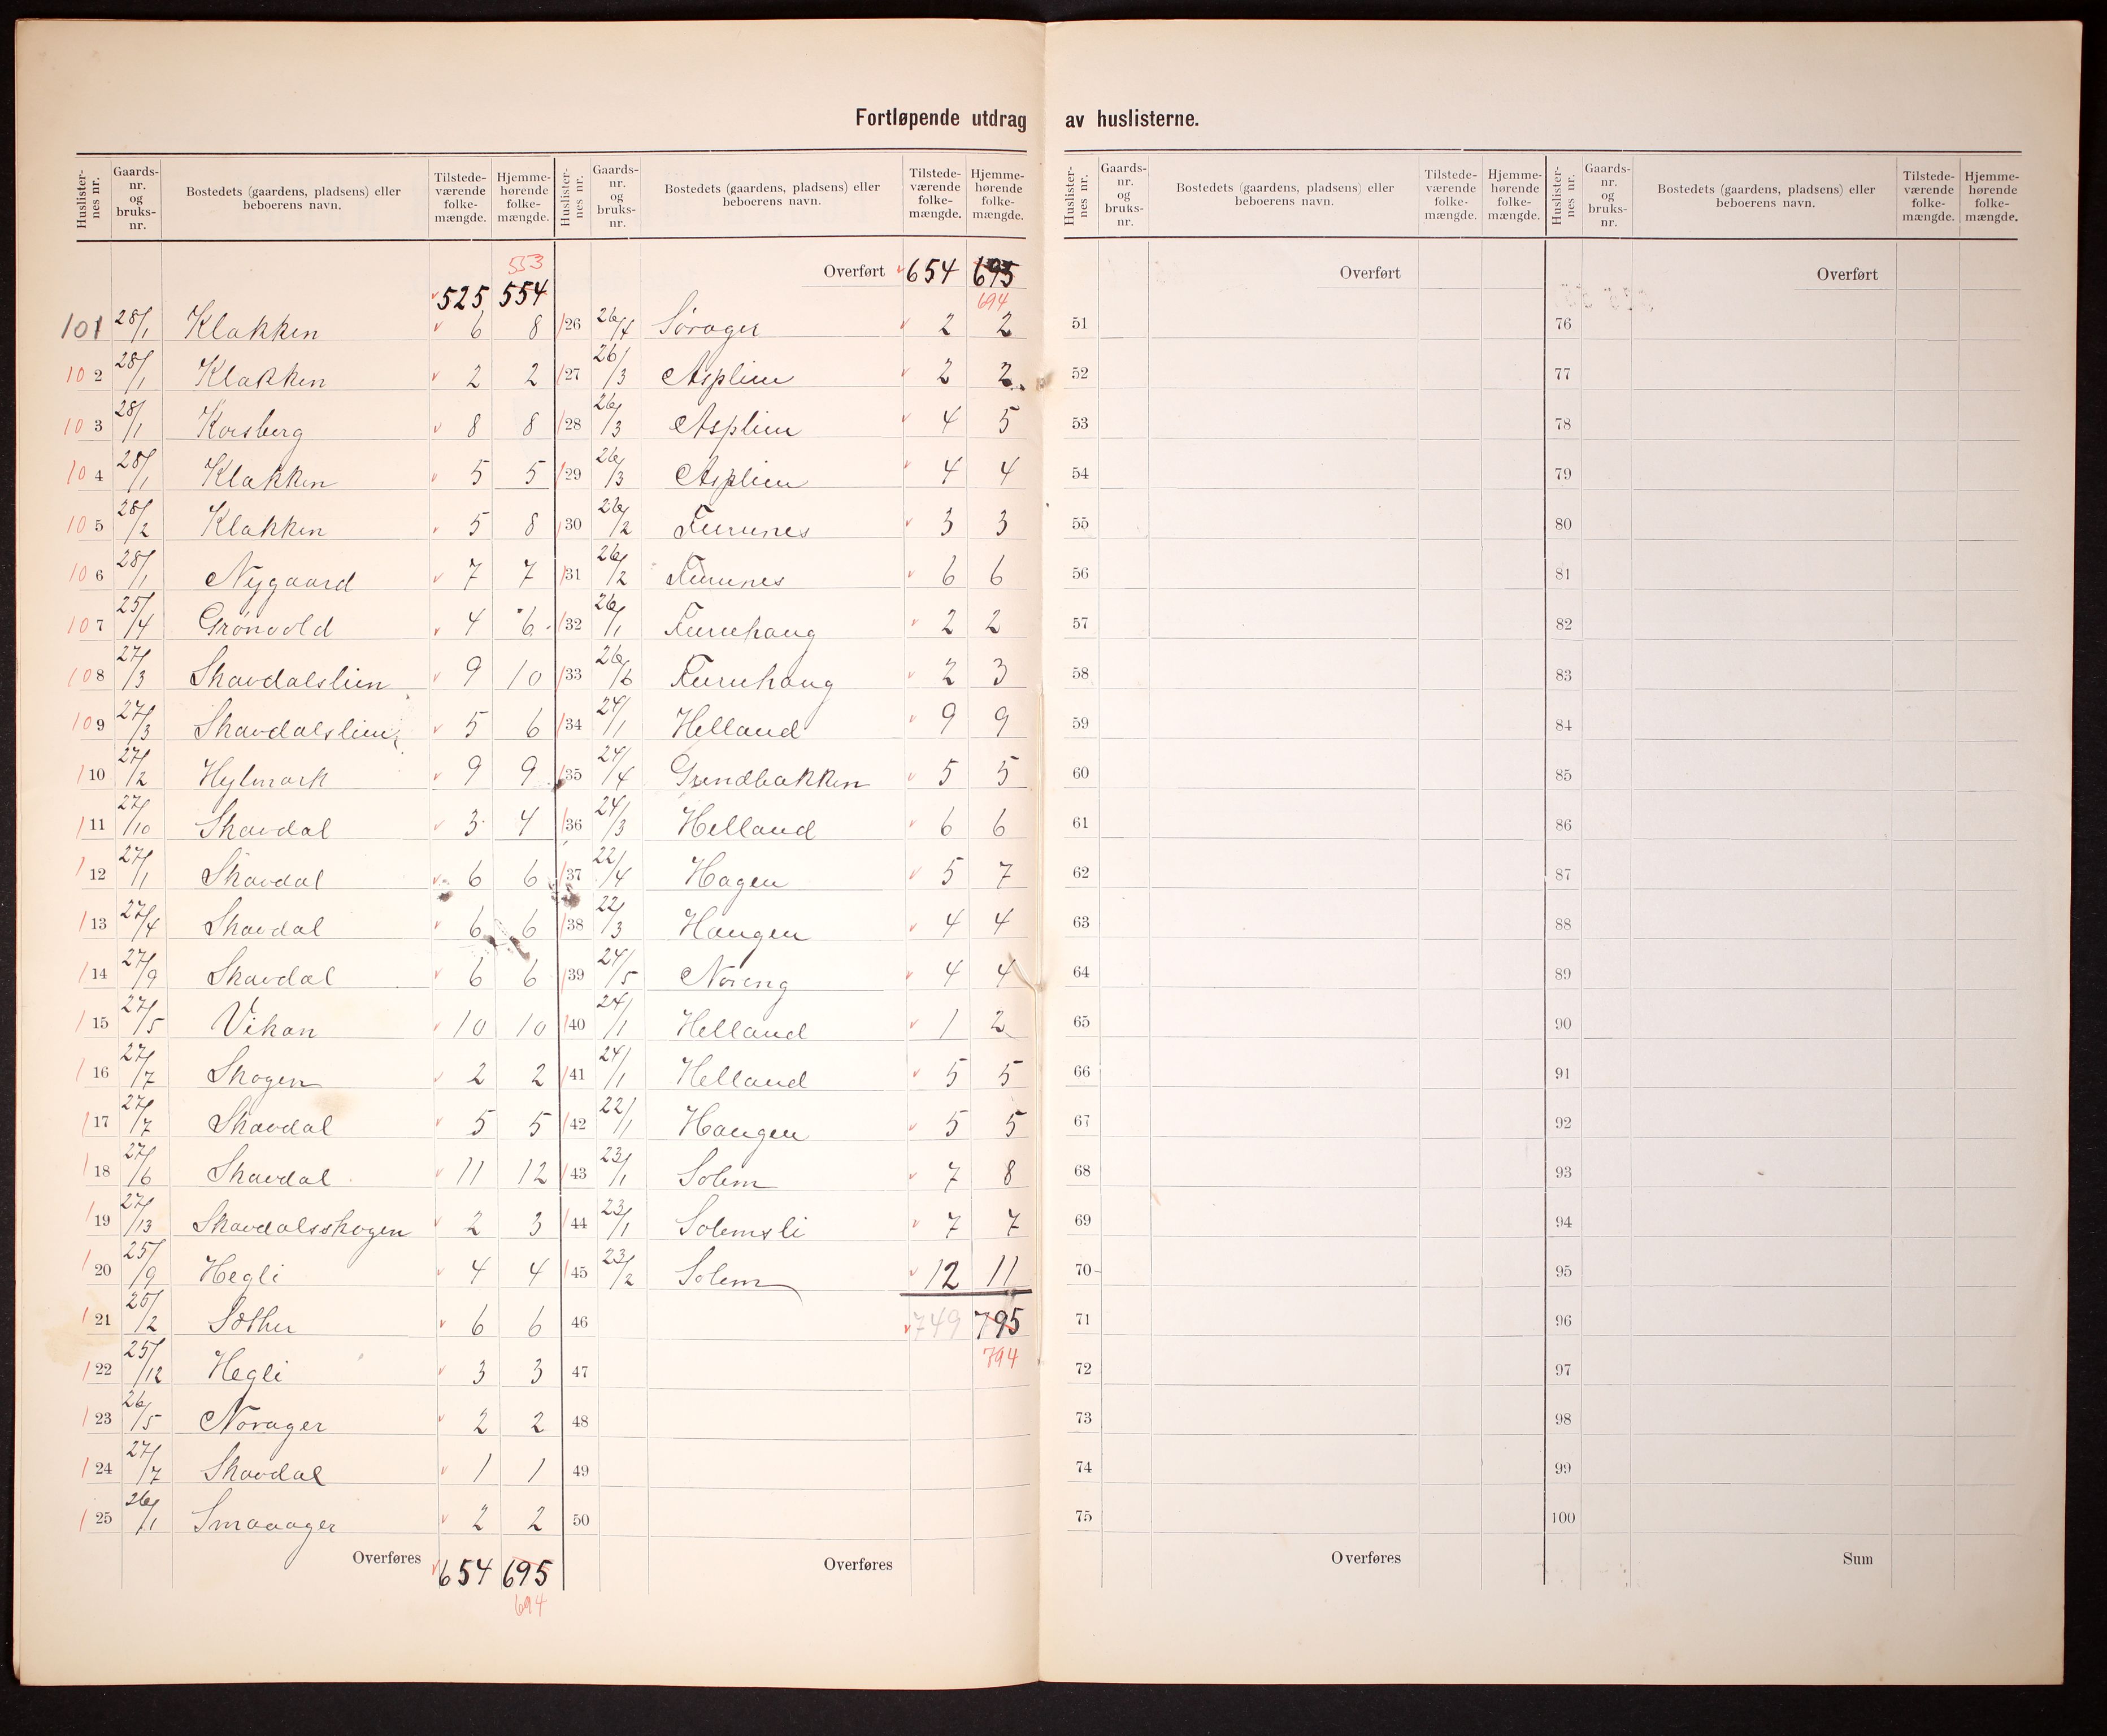 Fortløpende utdrag av huslisterne.
Huslister- nes nr. | Gaards- nr. og bruks- nr. | Bostedets (gaardens, pladsens) eller beboerens navn. | Tilstede- værende folke- mængde. | Hjemme- hørende folke- mængde.
Huslister- nes nr. | Gaards- nr. og bruks- nr. | Bostedets (gaardens, pladsens) eller beboerens navn. | Tilstede- værende folke- mængde. | Hjemme- hørende folke- mængde.
553
525 554
101 28/1 Klakken 6 8
102 28/1 Klakken 2 2
103 28/1 Korsberg 8 8
104 28/1 Klakken 5 5
105 28/2 Klakken 5 8
106 28/1 Nygaard 7 7
107 25/4 Grønvold 4 6
108 27/3 Skavdalslien 9 10
109 27/3 Skavdalslien 5 6
110 27/2 Hylmark 9 9
111 27/10 Skavdal 3 4
112 27/1 Skavdal 6 6
113 27/4 Skavdal 6 6
114 27/9 Skavdal 6 6
115 27/5 Vikan 10 10
116 27/7 Skogen 2 2
117 27/7 Skavdal 5 5
118 27/6 Skavdal 11 12
119 27/13 Skavdalsskogen 2 3
120 25/9 Hegli 4 4
121 25/2 Sæther 6 6
122 25/12 Hegli 3 3
123 26/5 Norager 2 2
124 27/7 Skavdal 1 1
125 26/1 Smaaager 2 2
Overføres 654 695
694
Overført 654 695
694
126 26/4 Sørager 2 2
127 26/3 Asplien 2 2
128 26/3 Asplien 4 5
129 26/3 Asplien 4 4
130 26/2 Furunes 3 3
131 26/2 Furunes 6 6
132 26/1 Furuhaug 2 2
133 26/6 Furuhaug 2 3
134 24/1 Helland 9 9
135 24/4 Grendbakken 5 5
136 24/3 Helland 6 6
137 22/4 Hagen 5 7
138 22/3 Haugen 4 4
139 24/5 Noreng 4 4
140 24/1 Helland 1 2
141 24/1 Helland 5 5
142 22/1 Haugen 5 5
143 23/1 Solem 7 8
144 23/1 Solemsli 7 7
145 23/2 Solem 12 11
46 749 795
794
47
48
49
50
Overføres
Huslister- nes nr. | Gaards- nr. og bruks- nr. | Bostedets (gaardens, pladsens) eller beboerens navn. | Tilstede- værende folke- mængde. | Hjemme- hørende folke- mængde.
Overført
51
52
53
54
55
56
57
58
59
60
61
62
63
64
65
66
67
68
69
70
71
72
73
74
75
Overføres
Huslister- nes nr. | Gaards- nr. og bruks- nr. | Bostedets (gaardens, pladsens) eller beboerens navn. | Tilstede- værende folke- mængde. | Hjemme- hørende folke- mængde.
Overført
76
77
78
79
80
81
82
83
84
85
86
87
88
89
90
91
92
93
94
95
96
97
98
99
100
Sum